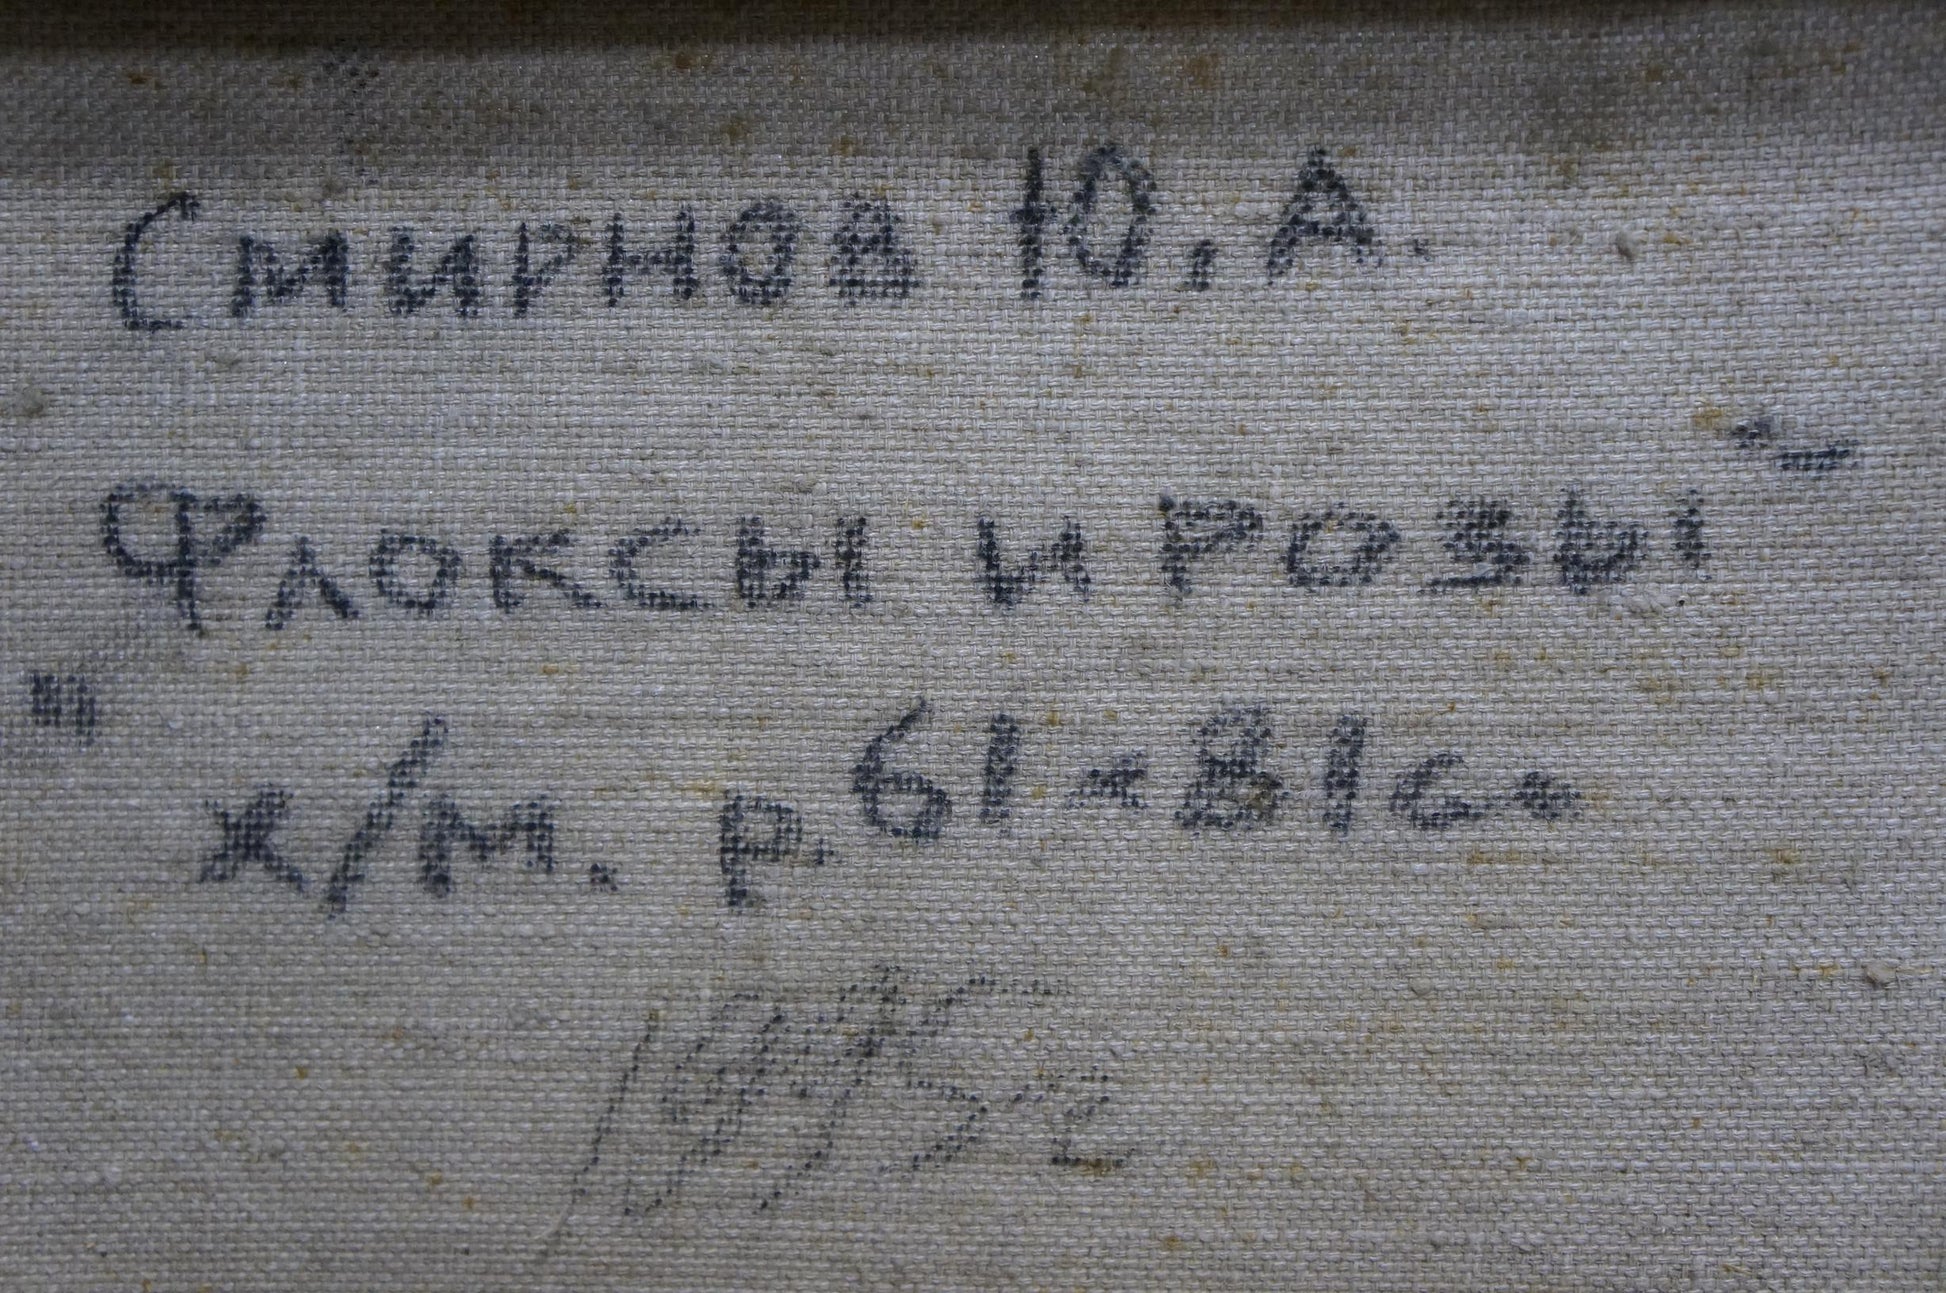 Смирнов Ю. А.
"Флоксы и розы"
х/м. р. 61-81 см